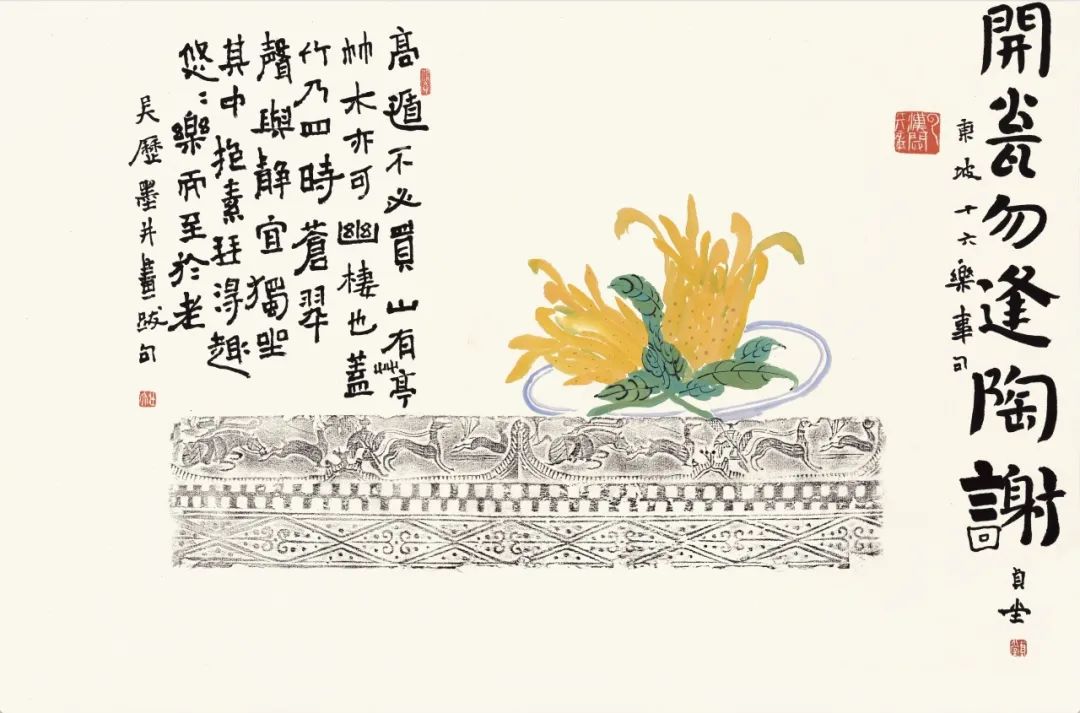 開瓮勿逢陶謝
東坡十六樂事句
高遁不必買山有艸亭
木亦可幽棲也蓋
竹乃四時蒼翠
聲與静宜獨坐
其中抱素琴得趣
悠：樂而至於老
吴歷墨井畫跋句